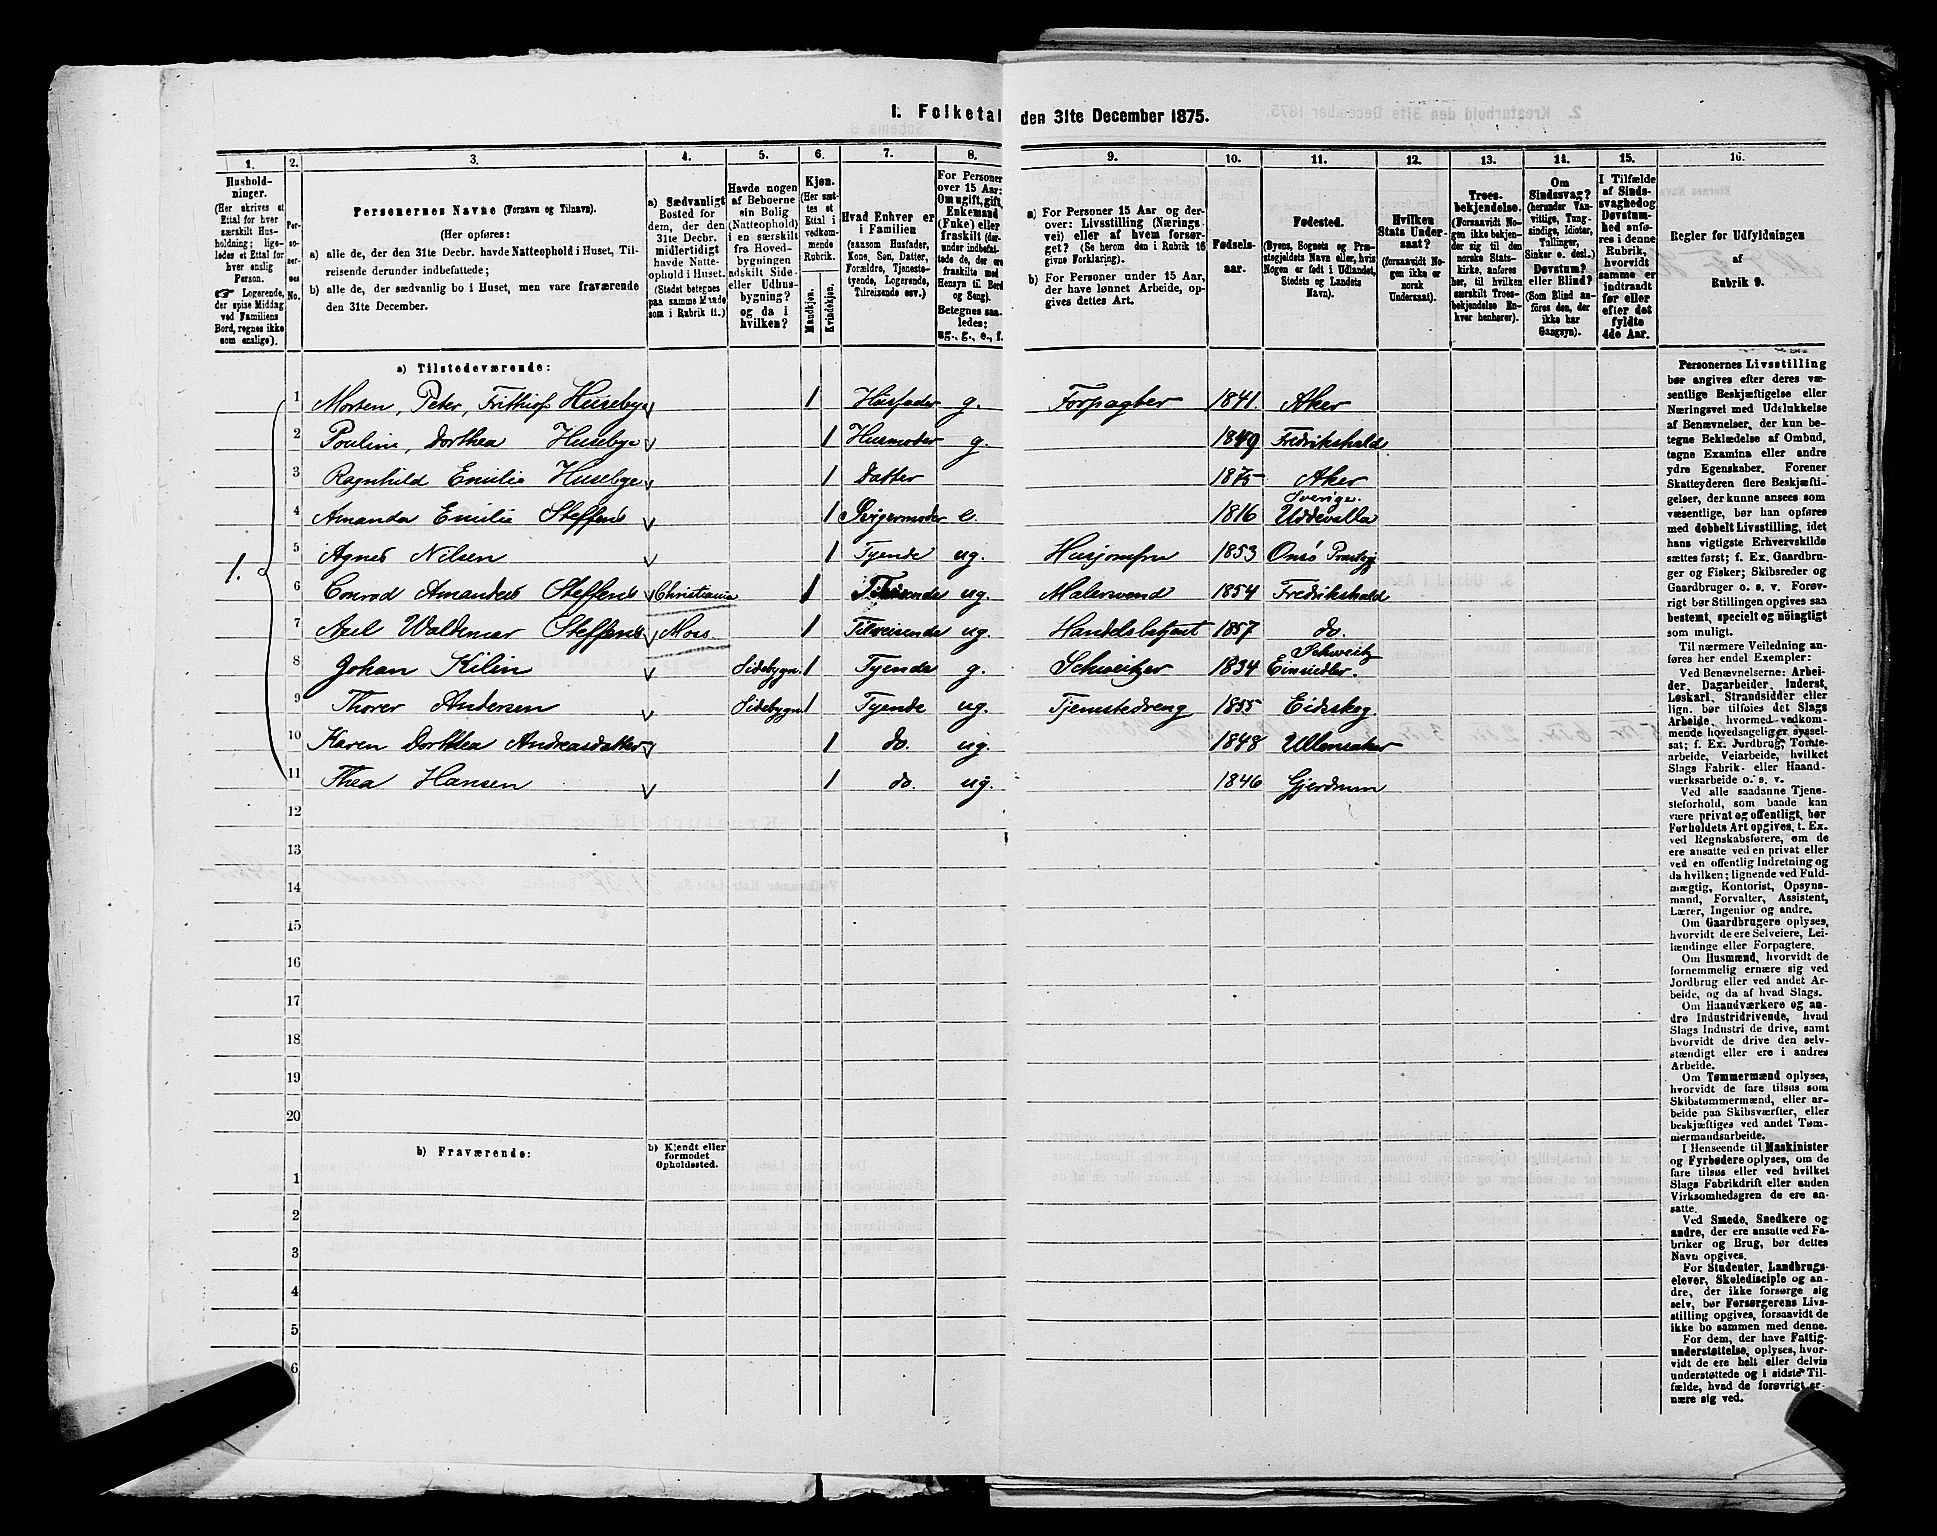 I. Folketal den 31te December 1875.
1. 2. 3. 4. 5. 6. 7. 8. 9. 10. 11. 12. 13. 14. 15. 16.
Hushold-
ninger.
(Her skrives et
Ettal for hver
særskilt Hus-
holdning; lige-
ledes et Ettal for
hver enslig
Person.
☞ Logerende,
der spise Middag
ved Familiens
Bord, regnes ikke
som enslige).
Per-
so-
ner-
nes
No.
Personernes Navne (Fornavn og Tilnavn).
(Her opføres:
a) alle de, der den 31te Decbr. havde Natteophold i Huset, Til-
reisende derunder indbefattede;
b) alle de, der sædvanlig bo i Huset, men vare fraværende
den 31te December.
a) Sædvanligt
Bosted for
dem, der den
31te Decbr.
midlertidigt
havde Natte-
ophold i Huset.
(Stedet betegnes
paa samme Maade
som i Rubrik 11.)
Havde nogen
af Beboerne
sin Bolig
(Natteophold)
i en særskilt
fra Hoved-
bygningen
adskilt Side-
eller Udhus-
bygning?
og da i
hvilken?
Kjøn.
(Her sæt-
tes et
Ettal i
vedkom-
mende
Rubrik.
Mandkjøn.
Kvindekjøn.
Hvad Enhver er
i Familien
(saasom Husfader,
Kone, Søn, Datter,
Forældre, Tjeneste-
tyende, Logerende,
Tilreisende osv.)
For Personer
over 15 Aar:
Om ugift, gift,
Enkemand
(Enke) eller
fraskilt (der-
under indbefat-
tede de, der ere
fraskilte med
Hensyn til Bord
og Seng).
Betegnes saa-
ledes:
ug., g., e., f.
a) For Personer 15 Aar og der-
over: Livsstilling (Nærings-
vei) eller af hvem forsør-
get? (Se herom den i Rubrik 16
givne Forklaring).
b) For Personer under 15 Aar,
der have lønnet Arbeide, op-
gives dettes Art.
Fødsels-
aar.
Fødested.
(Byens, Sognets og Præ-
stegjeldets Navn eller, hvis
Nogen er født i Udlandet,
Stedets og Landets
Navn).
Hvilken
Stats Under-
saat?
(forsaavidt No-
gen ikke er
norsk
Undersaat).
Troes-
bekjendelse.
(Forsaavidt No-
gen ikke bekjen-
der sig til den
norske Stats-
kirke, anføres
her, til hvilken
særskilt Troes-
bekjendelse En-
hver henhører).
Om
Sindssvag?
(herunder Van-
vittige, Tung-
sindige, Idioter,
Tullinger,
Sinker o. desl.)
Døvstum?
eller Blind?
(Som Blind an-
føres den, der
ikke har
Gangsyn).
I Tilfælde
af Sinds-
svaghed og
Døvstum-
hed anfø-
res i denne
Rubrik,
hvorvidt
samme er
indtraadt
før eller
efter det
fyldte
4de Aar.
Regler for Udfyldningen
af
Rubrik 9.
a) Tilstedeværende:
1.
1 Morten, Peter, Frithiof Husebye 1 Husfader g. Forpagter 1841. Aker
2 Pouline, Dorthea Husebye 1 Husmoder g. 1849 Fredrikshald
3 Ragnhild Emilie Husebye 1 Datter 1875 Aker
4 Amanda Emilie Steffens 1 Svigermoder e. 1816 Sverige. Uddevalla
5 Agnes Nilsen 1 Tyende ug. Husjomfru 1853 Onsø Præstegj
6 Conrad Amandus Steffens Christiania 1 Tilreisende ug. Malersvend 1854 Fredrikshald
7 Axel Waldemar Steffens Moss. 1 Tilreisende ug. Handelsbetjent 1857 do.
8 Johan Kilin Sidebygn. 1 Tyende g. Schweitzer 1834 Schweitz Einsiedler.
9 Thorer Andersen Sidebygn 1 Tyende ug. Tjenestedreng 1855 Eidskog
10 Karen Dorthea Andreasdatter 1 do. ug. 1848 Ullensaker
11 Thea Hansen 1 do. ug. 1846 Gjerdrum
12
13
14
15
16
17
18
19
20
b) Fraværende:
b) Kjendt eller
formodet
Opholdssted.
1
2
3
4
5
6
Personernes Livsstilling
bør angives efter deres væ-
sentlige Beskjæftigelse eller
Næringsvei med Udelukkelse
af Benævnelser, der kun be-
tegne Beklædelse af Ombud,
tagne Examina eller andre
ydre Egenskaber. Forener
Skatteyderen flere Beskjæfti-
gelser, der kunne ansees som
væsentlige, bør han opføres
med dobbelt Livsstilling, idet
hans vigtigste Erhvervskilde
sættes først; f. Ex. Gaardbru-
ger og Fisker; Skibsreder og
Gaardbruger o. s. v. Forøv-
rigt bør Stillingen opgives saa
bestemt, specielt og nöiagtigt
som muligt.
Til nærmere Veiledning an-
føres her endel Exempler:
Ved Benævnelserne: Arbei-
der, Dagarbeider, Inderst,
Løskarl, Strandsidder eller
lign. bør tilføies det Slags
Arbeide, hvormed vedkom-
mende hovedsagelig er syssel-
sat; f. Ex. Jordbrug, Tomte-
arbeide, Veiarbeide, hvilket
Slags Fabrik- eller Haand-
værksarbeide o. s. v.
Ved alle saadanne Tjene-
steforhold, som baade kan
være privat og offentligt, bør
Forholdets Art opgives, t. Ex.
ved Regnskabsførere, om de
ere ansatte ved en privat eller
ved en offentlig Indretning og
da hvilken; lignende ved Fuld-
mægtig, Kontorist, Opsyns-
mand, Forvalter, Assistent,
Lærer, Ingeniør og andre.
Om Gaardbrugere oplyses,
hvorvidt de ere Selveiere, Lei-
lændinge eller Forpagtere.
Om Husmænd, hvorvidt de
fornemmelig ernære sig ved
Jordbrug eller ved andet Ar-
beide, og da af hvad Slags.
Om Haandværkere og an-
dre Industridrivende, hvad
Slags Industri de drive, samt
hvorvidt de drive den selv-
stændigt eller ere i andres
Arbeide.
Om Tømmermænd oplyses,
hvorvidt de fare tilsøs som
Skibstømmermænd, eller ar-
beide paa Skibsværfter, eller
beskjæftiges ved andet Tøm-
mermandsarbeide.
I Henseende til Maskinister
og Fyrbødere oplyses, om de
fare tilsøs eller ved hvilket
Slags Fabrikdrift eller anden
Virksomhedsgren de ere an-
satte.
Ved Smede, Snedkere og
andre, der ere ansatte ved Fa-
briker og Brug, bør dettes
Navn opgives.
For Studenter, Landbrugs-
elever, Skoledisciple og an-
dre, der ikke forsørge sig
selv, bør Forsørgerens Livs-
stilling opgives, forsaavidt de
ikke bo sammen med denne.
For dem, der have Fattig-
understøttelse, oplyses, hvor-
vidt de ere helt eller delvis
understøttede og i sidste Til-
fælde, hvad de forøvrigt er-
nære sig ved.